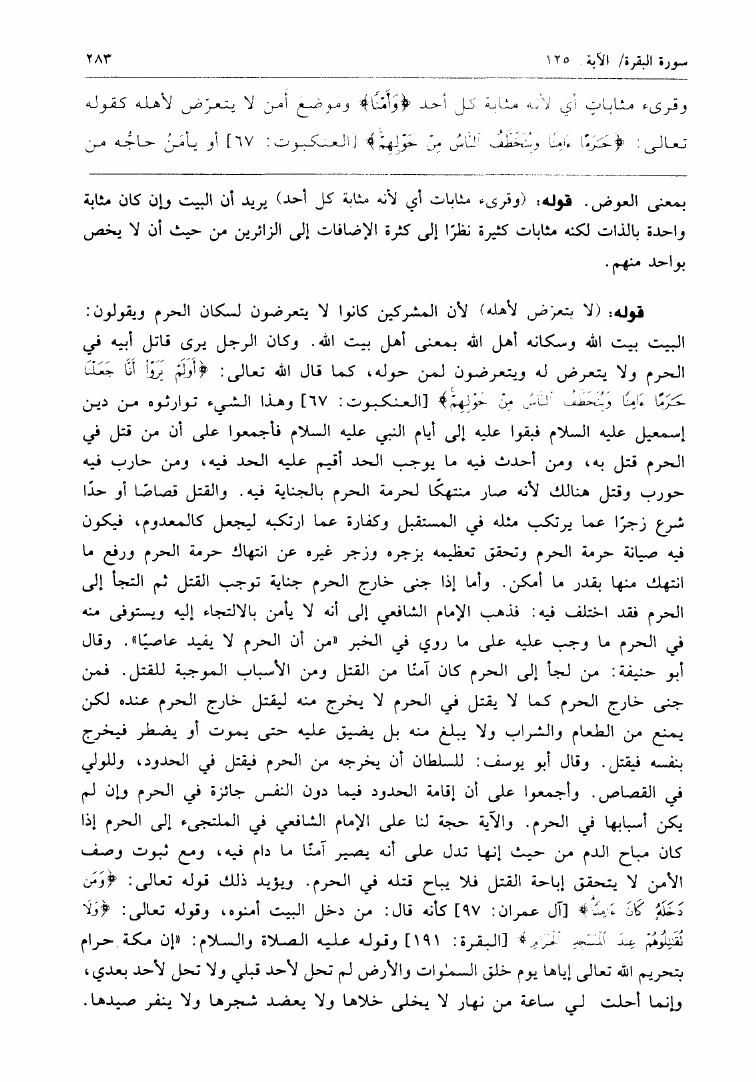 سورة البقرة/ الآية ١٢٥
٢٨٣
وقرىء مثابات أي لأنه مثابة كل أحد ﴿وَأَمْنًا﴾ وموضع أمن لا يتعرّض لأهله كقوله
تعالى: ﴿حَرَمًا ءَامِنًا وَيُتَخَطَّفُ ٱلنَّاسُ مِنْ حَوْلِهِمْ﴾ [العنكبوت: ٦٧] أو يأمَنُ حاجُّه من
بمعنى العوض. قوله: (وقرىء مثابات أي لأنه مثابة كل أحد) يريد أن البيت وإن كان مثابة
واحدة بالذات لكنه مثابات كثيرة نظرًا إلى كثرة الإضافات إلى الزائرين من حيث أن لا يخص
بواحد منهم.
قوله: (لا يتعرّض لأهله) لأن المشركين كانوا لا يتعرضون لسكان الحرم ويقولون:
البيت بيت الله وسكانه أهل الله بمعنى أهل بيت الله. وكان الرجل يرى قاتل أبيه في
الحرم ولا يتعرض له ويتعرضون لمن حوله، كما قال الله تعالى: ﴿أَوَلَمْ يَرَوْا أَنَّا جَعَلْنَا
حَرَمًا ءَامِنًا وَيُتَخَطَّفُ ٱلنَّاسُ مِنْ حَوْلِهِمْ﴾ [العنكبوت: ٦٧] وهذا الشيء توارثوه من دين
إسمعيل عليه السلام فبقوا عليه إلى أيام النبي عليه السلام فأجمعوا على أن من قتل في
الحرم قتل به، ومن أحدث فيه ما يوجب الحد أقيم عليه الحد فيه، ومن حارب فيه
حورب وقتل هنالك لأنه صار منتهكًا لحرمة الحرم بالجناية فيه. والقتل قصاصًا أو حدًا
شرع زجرًا عما يرتكب مثله في المستقبل وكفارة عما ارتكبه ليجعل كالمعدوم، فيكون
فيه صيانة حرمة الحرم وتحقق تعظيمه بزجره وزجر غيره عن انتهاك حرمة الحرم ورفع ما
انتهك منها بقدر ما أمكن. وأما إذا جنى خارج الحرم جناية توجب القتل ثم التجأ إلى
الحرم فقد اختلف فيه: فذهب الإمام الشافعي إلى أنه لا يأمن بالالتجاء إليه ويستوفى منه
في الحرم ما وجب عليه على ما روي في الخبر «من أن الحرم لا يفيد عاصيًا». وقال
أبو حنيفة: من لجأ إلى الحرم كان آمنًا من القتل ومن الأسباب الموجبة للقتل. فمن
جنى خارج الحرم كما لا يقتل في الحرم لا يخرج منه ليقتل خارج الحرم عنده لكن
يمنع من الطعام والشراب ولا يبلغ منه بل يضيق عليه حتى يموت أو يضطر فيخرج
بنفسه فيقتل. وقال أبو يوسف: للسلطان أن يخرجه من الحرم فيقتل في الحدود، وللولي
في القصاص. وأجمعوا على أن إقامة الحدود فيما دون النفس جائزة في الحرم وإن لم
يكن أسبابها في الحرم. والآية حجة لنا على الإمام الشافعي في الملتجىء إلى الحرم إذا
كان مباح الدم من حيث إنها تدل على أنه يصير آمنًا ما دام فيه، ومع ثبوت وصف
الأمن لا يتحقق إباحة القتل فلا يباح قتله في الحرم. ويؤيد ذلك قوله تعالى: ﴿وَمَن
دَخَلَهُ كَانَ ءَامِنًا﴾ [آل عمران: ٩٧] كأنه قال: من دخل البيت أمنوه، وقوله تعالى: ﴿وَلَا
تُقَٰتِلُوهُمْ عِندَ ٱلْمَسْجِدِ ٱلْحَرَامِ﴾ [البقرة: ١٩١] وقوله عليه الصلاة والسلام: «إن مكة حرام
بتحريم الله تعالى إياها يوم خلق السمٰوات والأرض لم تحل لأحد قبلي ولا تحل لأحد بعدي،
وإنما أحلت لي ساعة من نهار لا يخلى خلاها ولا يعضد شجرها ولا ينفر صيدها.